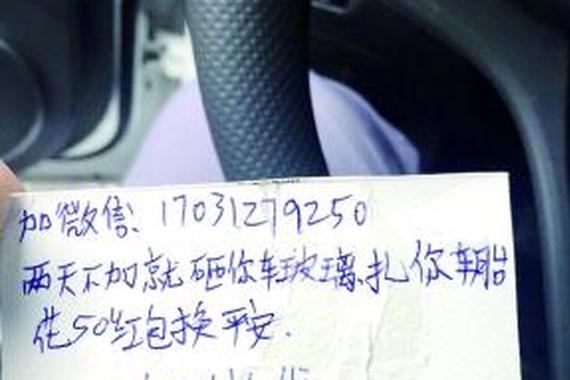 加微信: 17031279250
两天不加就砸你车玻璃.扎你车胎
花50红包换平安.